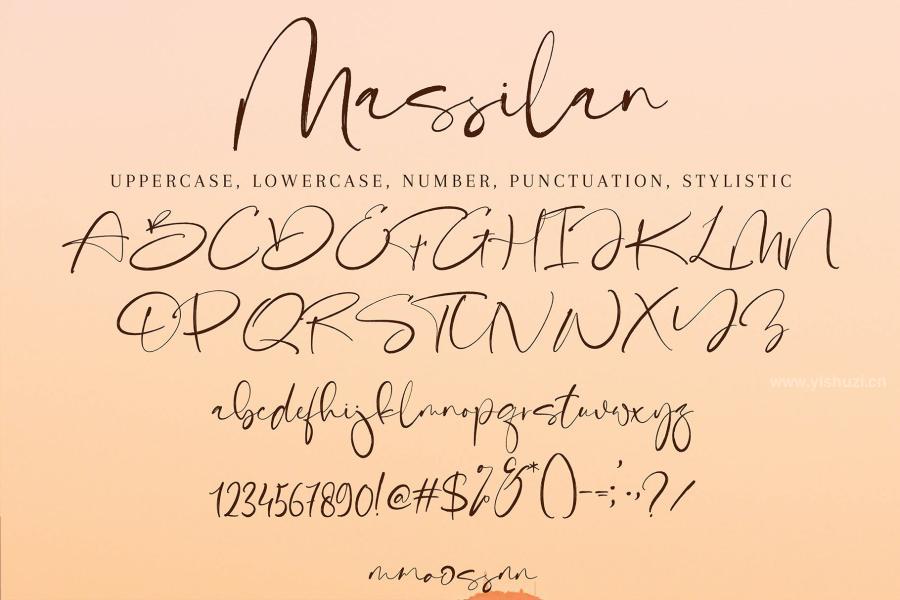 Massilan
UPPERCASE, LOWERCASE, NUMBER, PUNCTUATION, STYLISTIC
ABCDEFGHIJKLMN
OPQRSTUVWXYZ
www.yishuzi.cn
abcdefghijklmnopqrstuvwxyz
1234567890!@#$%&*()--=;'.,?/